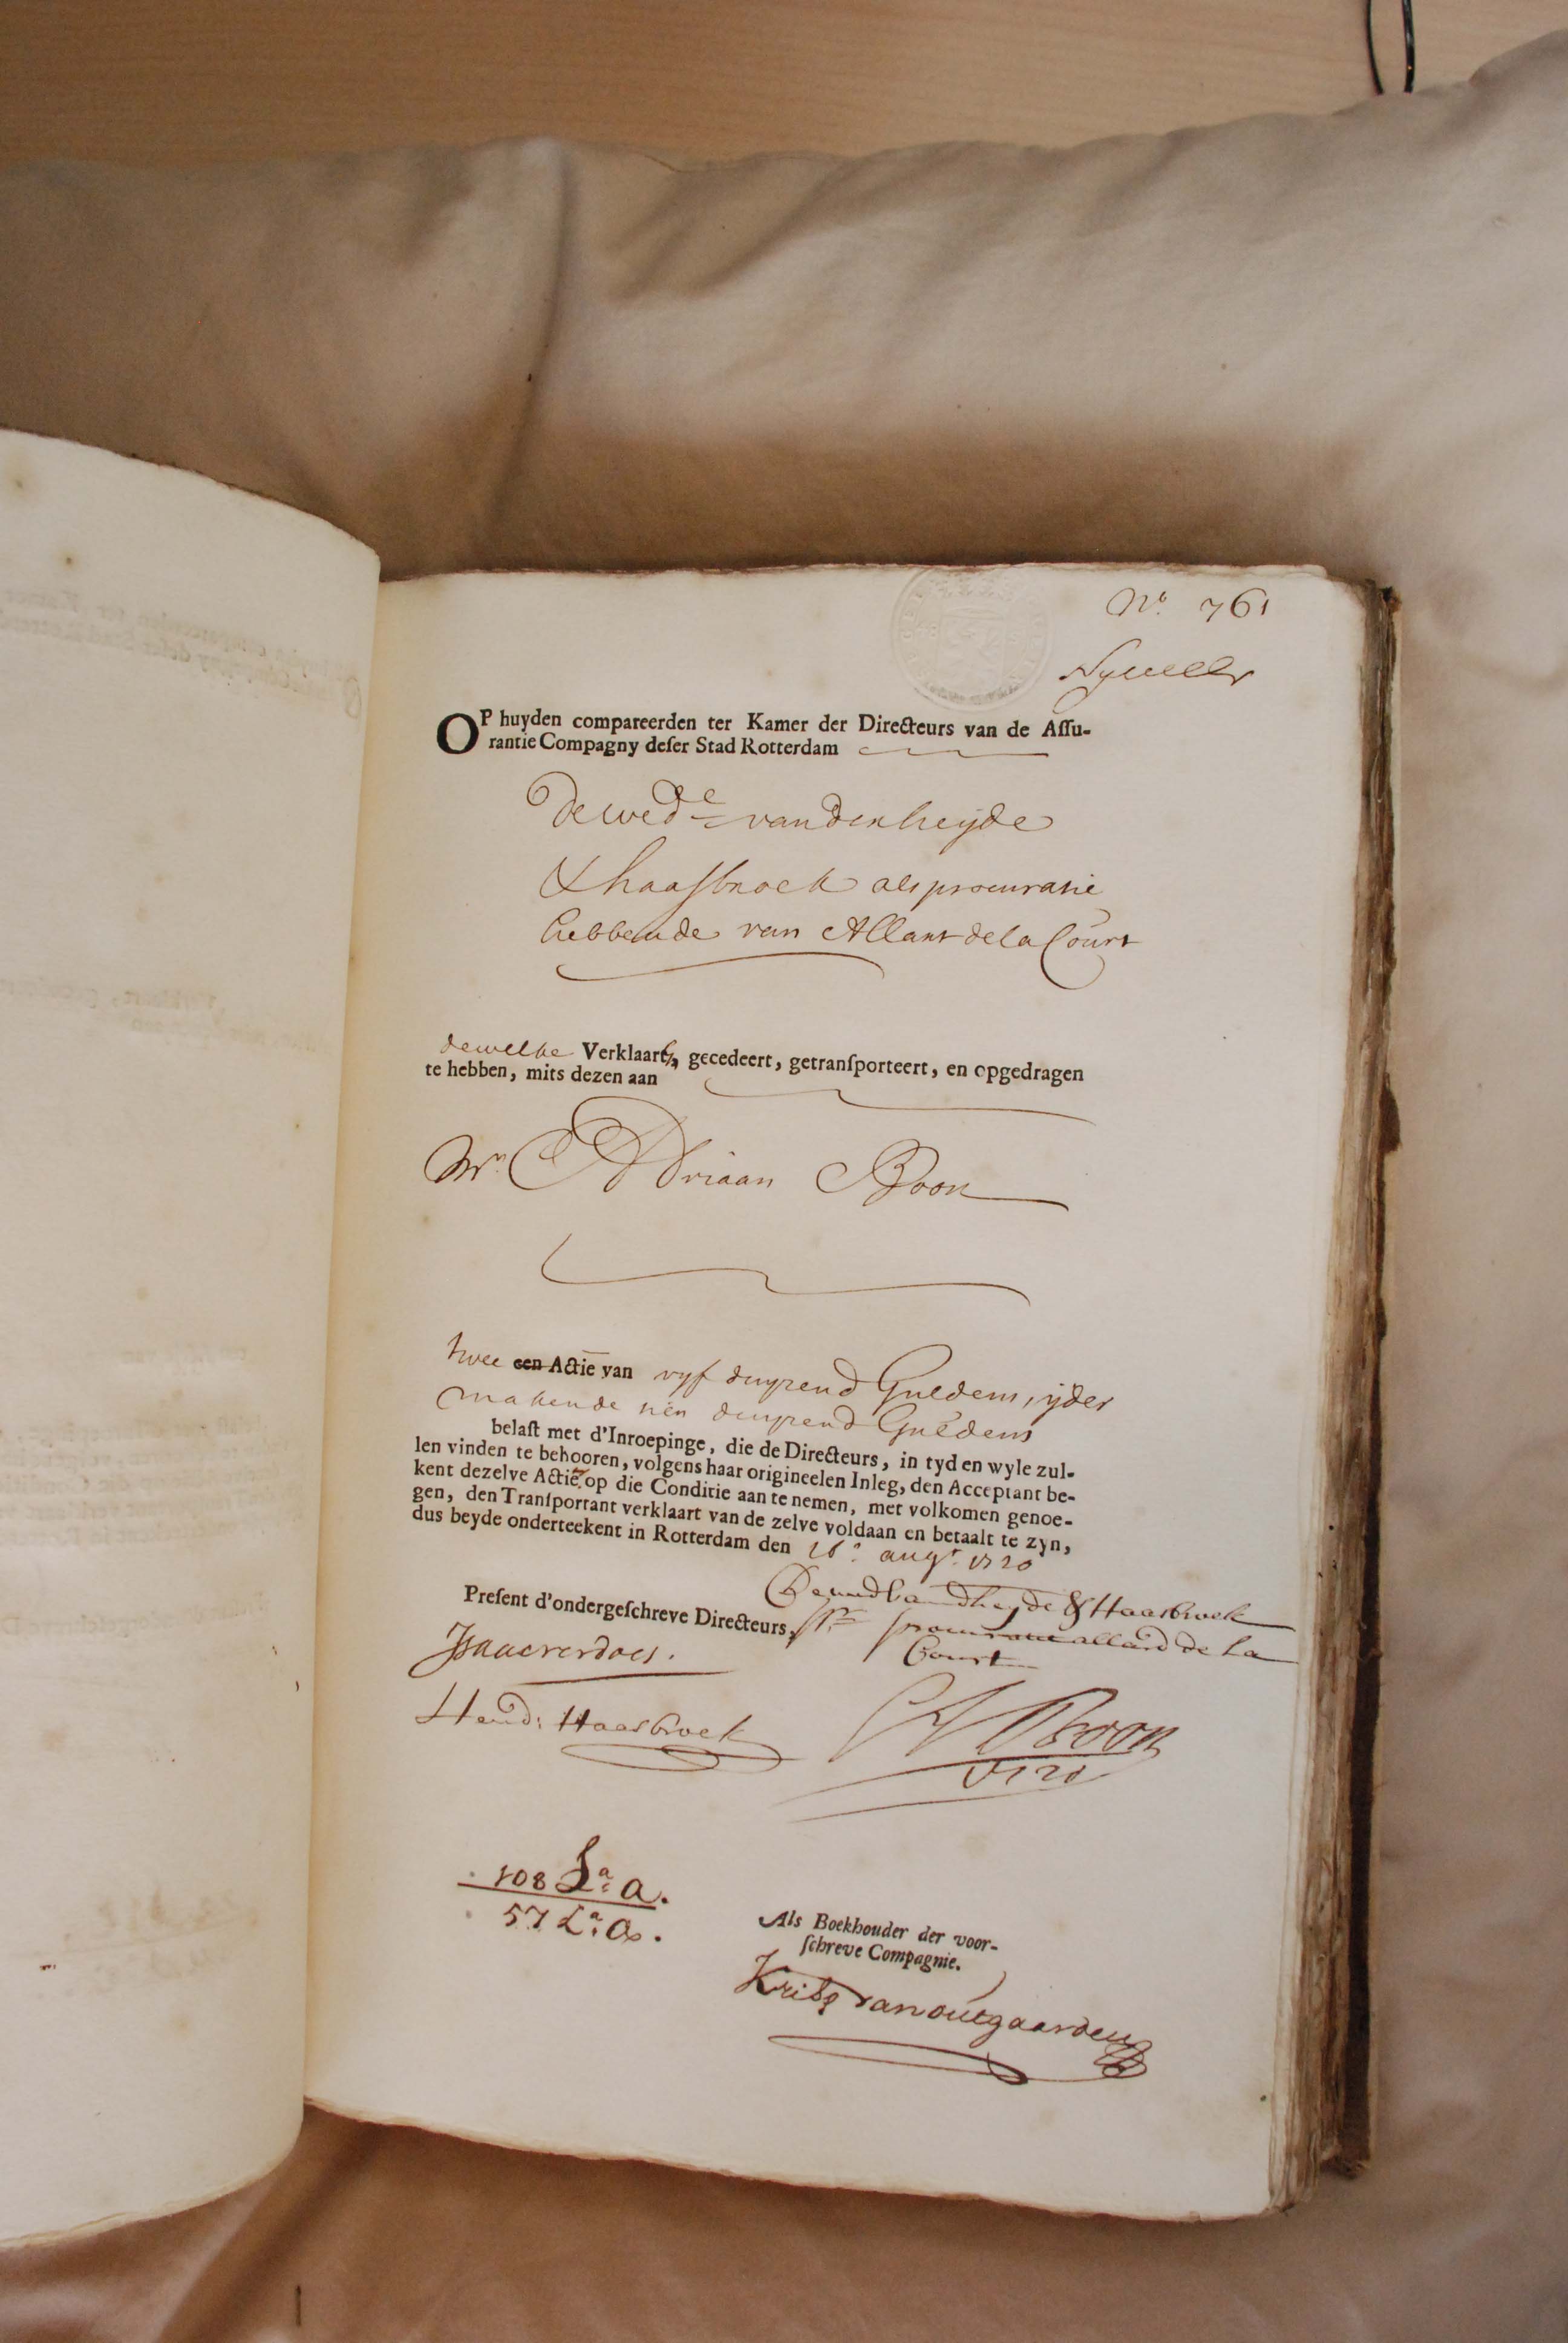 No. 761
OP huyden compareerden ter Kamer der Directeurs van de Assu-
rantie Compagny deser Stad Rotterdam
De wede vander heijde
& haasbroek als procuratie
hebbende van Allart de la Court
dewelke Verklaart, gecedeert, getransporteert, en opgedragen
te hebben, mits dezen aan
Mr Adriaan Boon
twee een Actie van vyf duyzend Guldens, ijder
makende tien duyzend Guldens
belast met d'Inroepinge, die de Directeurs, in tyd en wyle zul-
len vinden te behooren, volgens haar origineelen Inleg, den Acceptant be-
kent dezelve Actie op die Conditie aan te nemen, met volkomen genoe-
gen, den Transportant verklaart van de zelve voldaan en betaalt te zyn,
dus beyde onderteekent in Rotterdam den 26e. augt. 1720
De wed vandheyde & Haasbroek
Present d'ondergeschreve Directeurs, allard de La
Court
Isaac verdoes.
Hend: Haasbroek
A Boon
1720
108 La: a.
57 La: a.
Als Boekhouder der voor-
schreve Compagnie.
van outgaarden